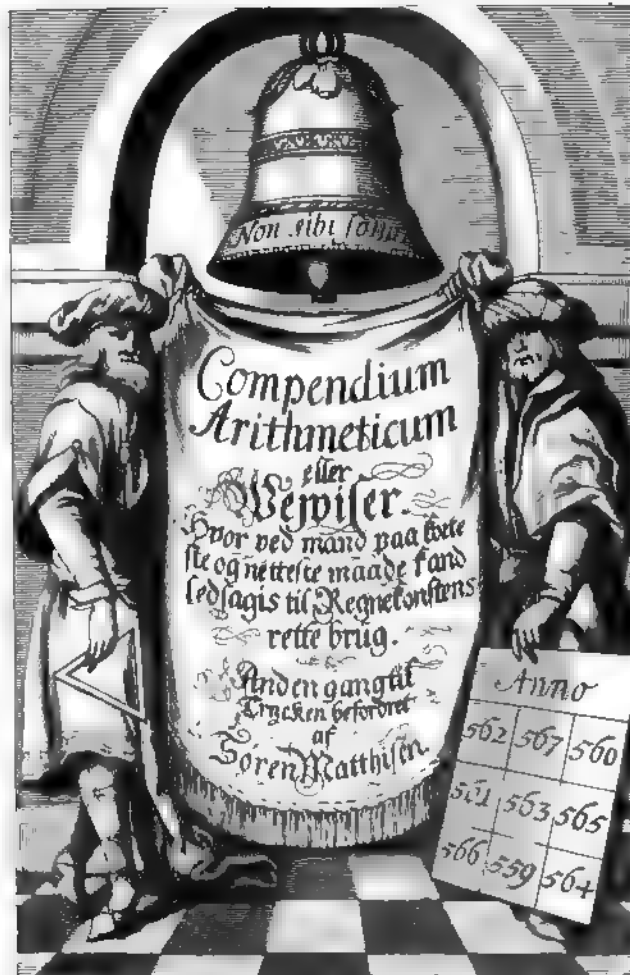 Non sibi sonat
Compendium
Arithmeticum
eller
Wejviser.
Hvor ved mand paa korte
ste og netteste maade kand
ledsagis til Regnekonstens
rette brug.
Anden gang til
Trycken befordret
af
Søren Matthisen
Anno
562 567 560
561 563 565
566 559 564